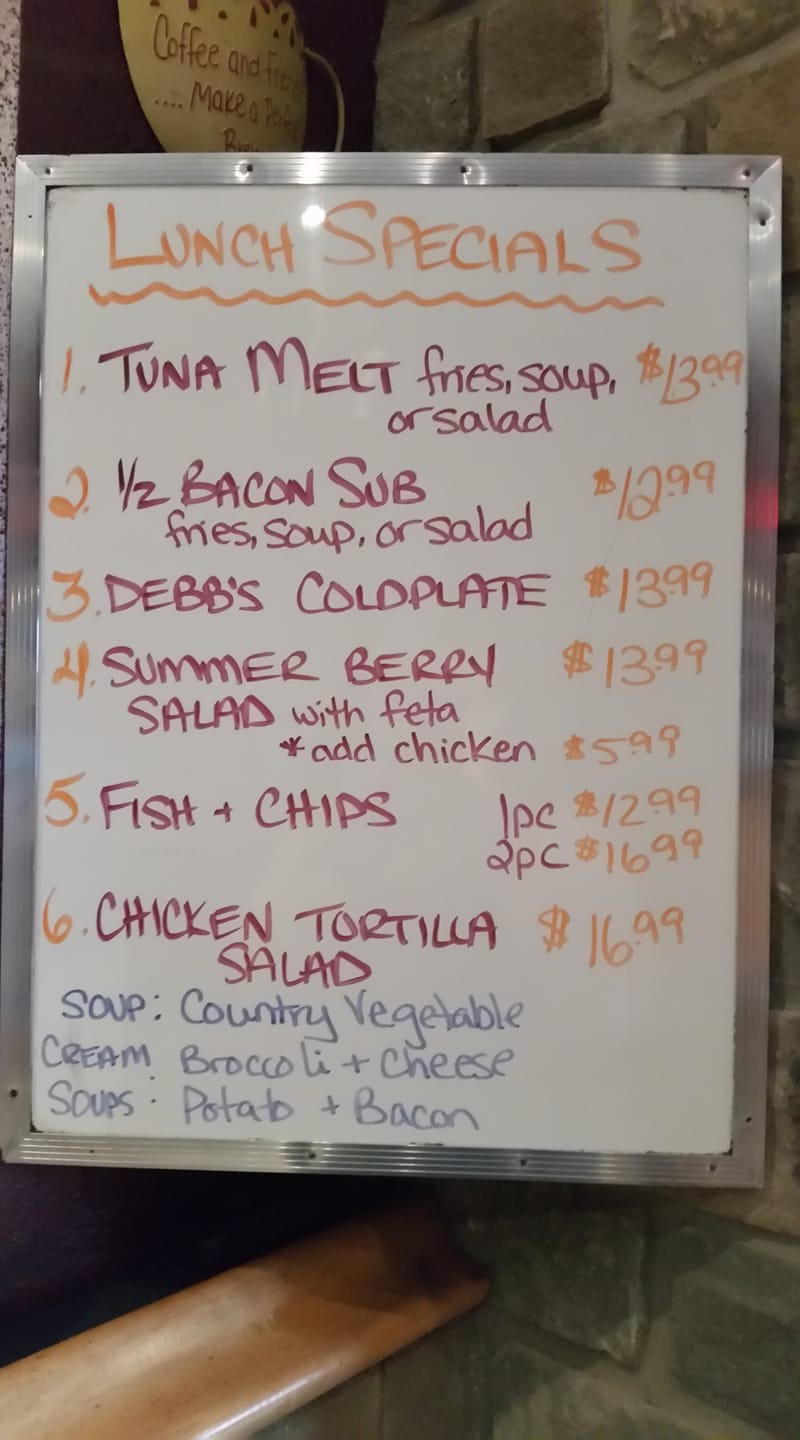 Coffee and
.... Make a
LUNCH SPECIALS
1. TUNA MELT fries, soup, $13.99
or salad
2. 1/2 BACON SUB $12.99
fries, soup, or salad
3. DEBB'S COLDPLATE $13.99
4. SUMMER BERRY $13.99
SALAD with feta
*add chicken $5.99
5. FISH + CHIPS 1pc $12.99
2pc $16.99
6. CHICKEN TORTILLA $16.99
SALAD
SOUP: Country Vegetable
CREAM Broccoli + Cheese
SOUPS: Potato + Bacon